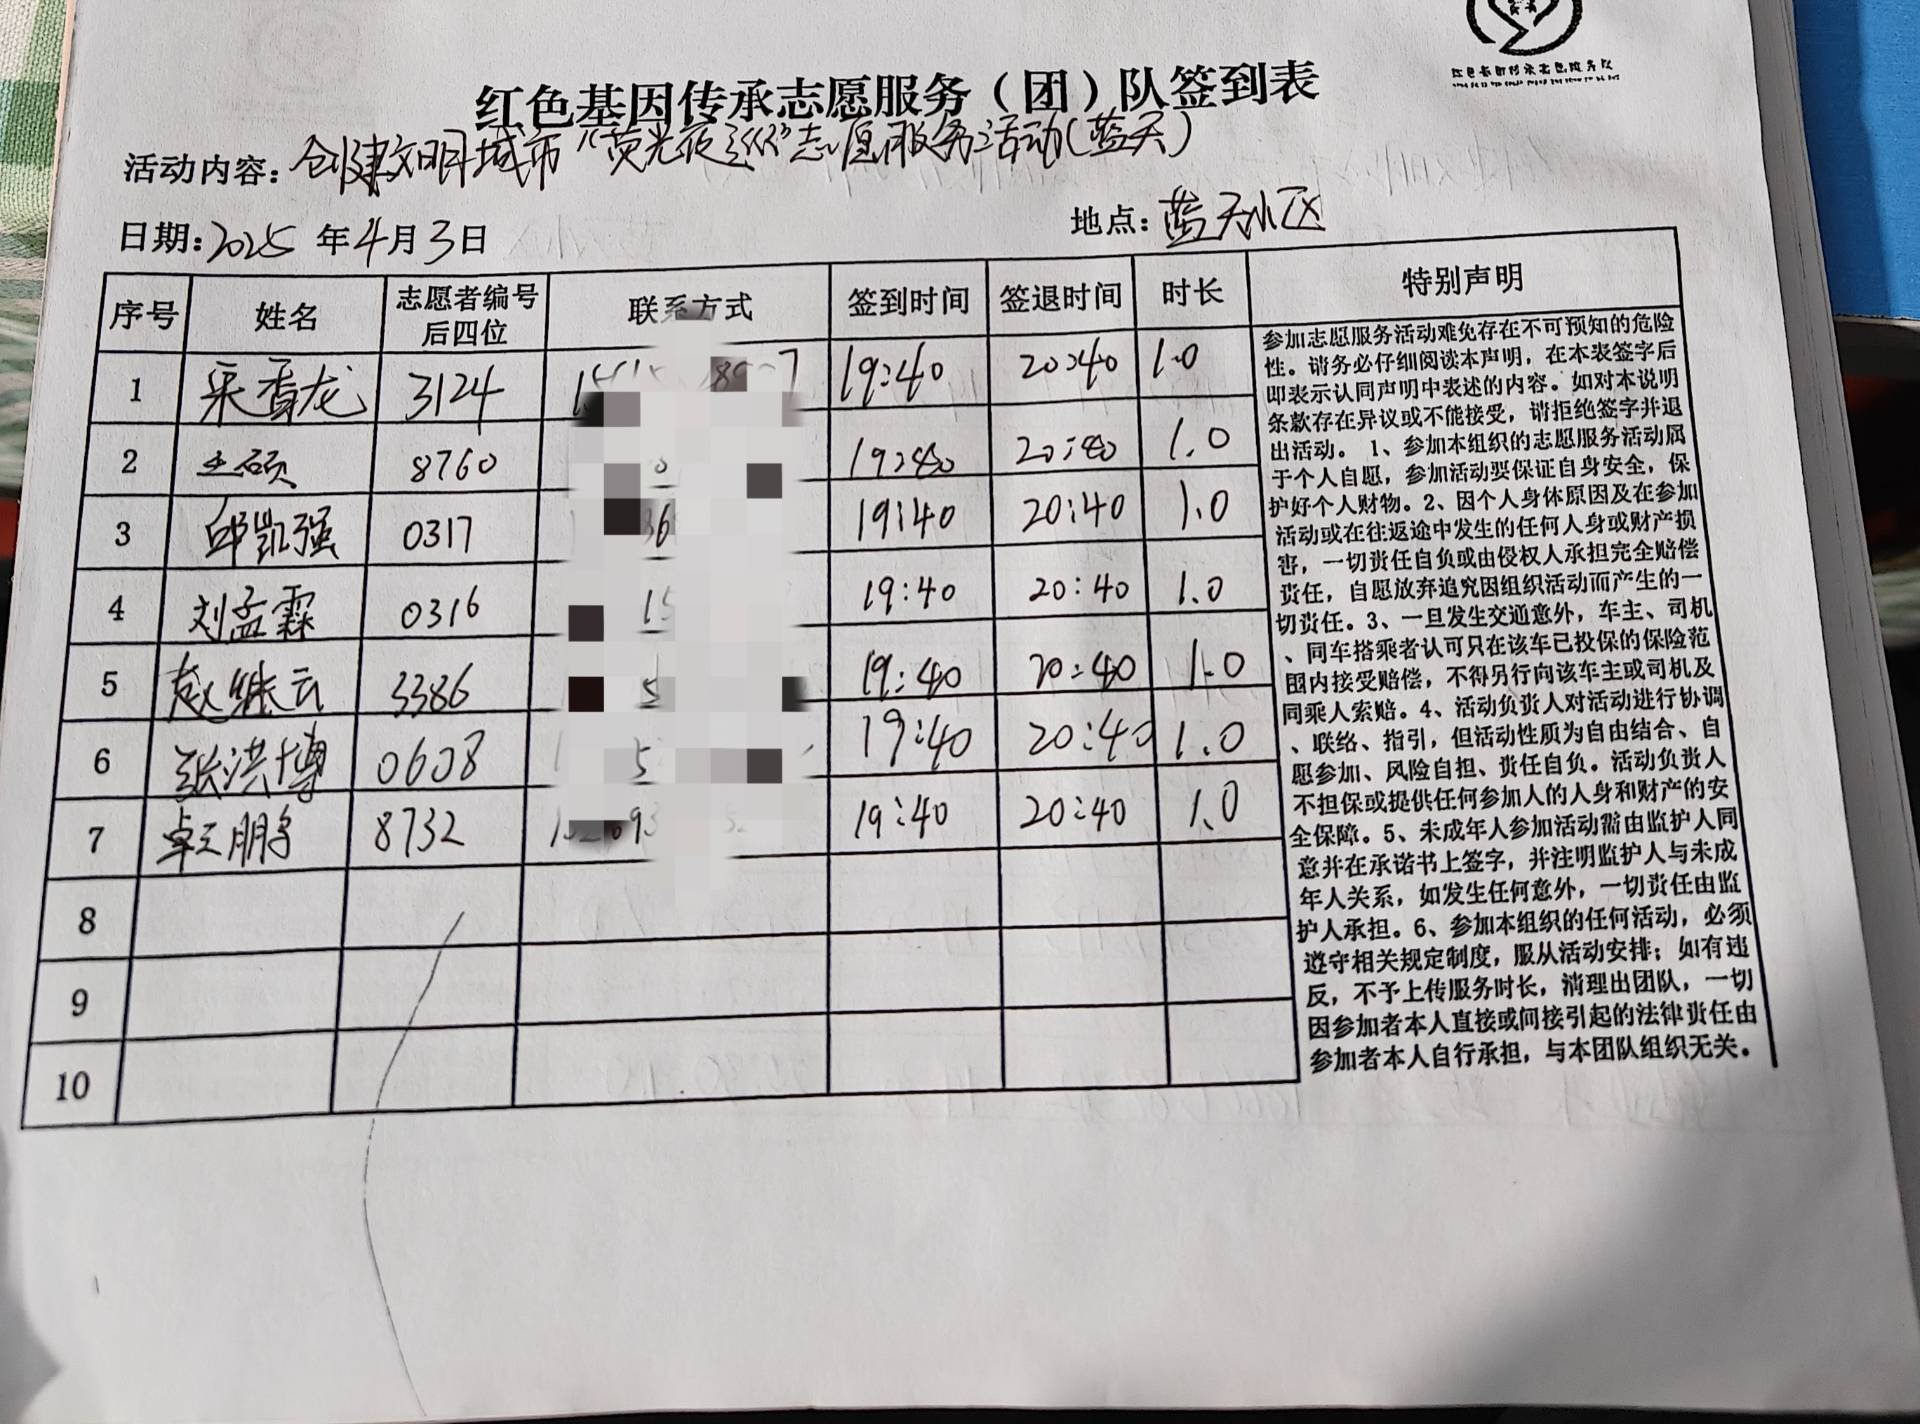 红色基因传承志愿服务（团）队签到表
活动内容：创建文明城市“荧光夜巡”志愿服务活动(蓝天)
日期：2025 年 4 月 3 日 地点：蓝天小区
序号 姓名 志愿者编号后四位 联系方式 签到时间 签退时间 时长 特别声明
1 香龙 3124 19:40 20:40 1.0
2 王硕 8760 19:40 20:40 1.0
3 邱凯强 0317 19:40 20:40 1.0
4 刘孟霖 0316 19:40 20:40 1.0
5 赵继云 3386 19:40 20:40 1.0
6 张洪博 0608 19:40 20:40 1.0
7 8732 19:40 20:40 1.0
8
9
10
参加志愿服务活动难免存在不可预知的危险
性。请务必仔细阅读本声明，在本表签字后
即表示认同声明中表述的内容。如对本说明
条款存在异议或不能接受，请拒绝签字并退
出活动。 1、参加本组织的志愿服务活动属
于个人自愿，参加活动要保证自身安全，保
护好个人财物。2、因个人身体原因及在参加
活动或在往返途中发生的任何人身或财产损
害，一切责任自负或由侵权人承担完全赔偿
责任，自愿放弃追究因组织活动而产生的一
切责任。3、一旦发生交通意外，车主、司机
、同车搭乘者认可只在该车已投保的保险范
围内接受赔偿，不得另行向该车主或司机及
同乘人索赔。4、活动负责人对活动进行协调
、联络、指引，但活动性质为自由结合、自
愿参加、风险自担、责任自负。活动负责人
不担保或提供任何参加人的人身和财产的安
全保障。5、未成年人参加活动需由监护人同
意并在承诺书上签字，并注明监护人与未成
年人关系，如发生任何意外，一切责任由监
护人承担。6、参加本组织的任何活动，必须
遵守相关规定制度，服从活动安排；如有违
反，不予上传服务时长，清理出团队，一切
因参加者本人直接或间接引起的法律责任由
参加者本人自行承担，与本团队组织无关。